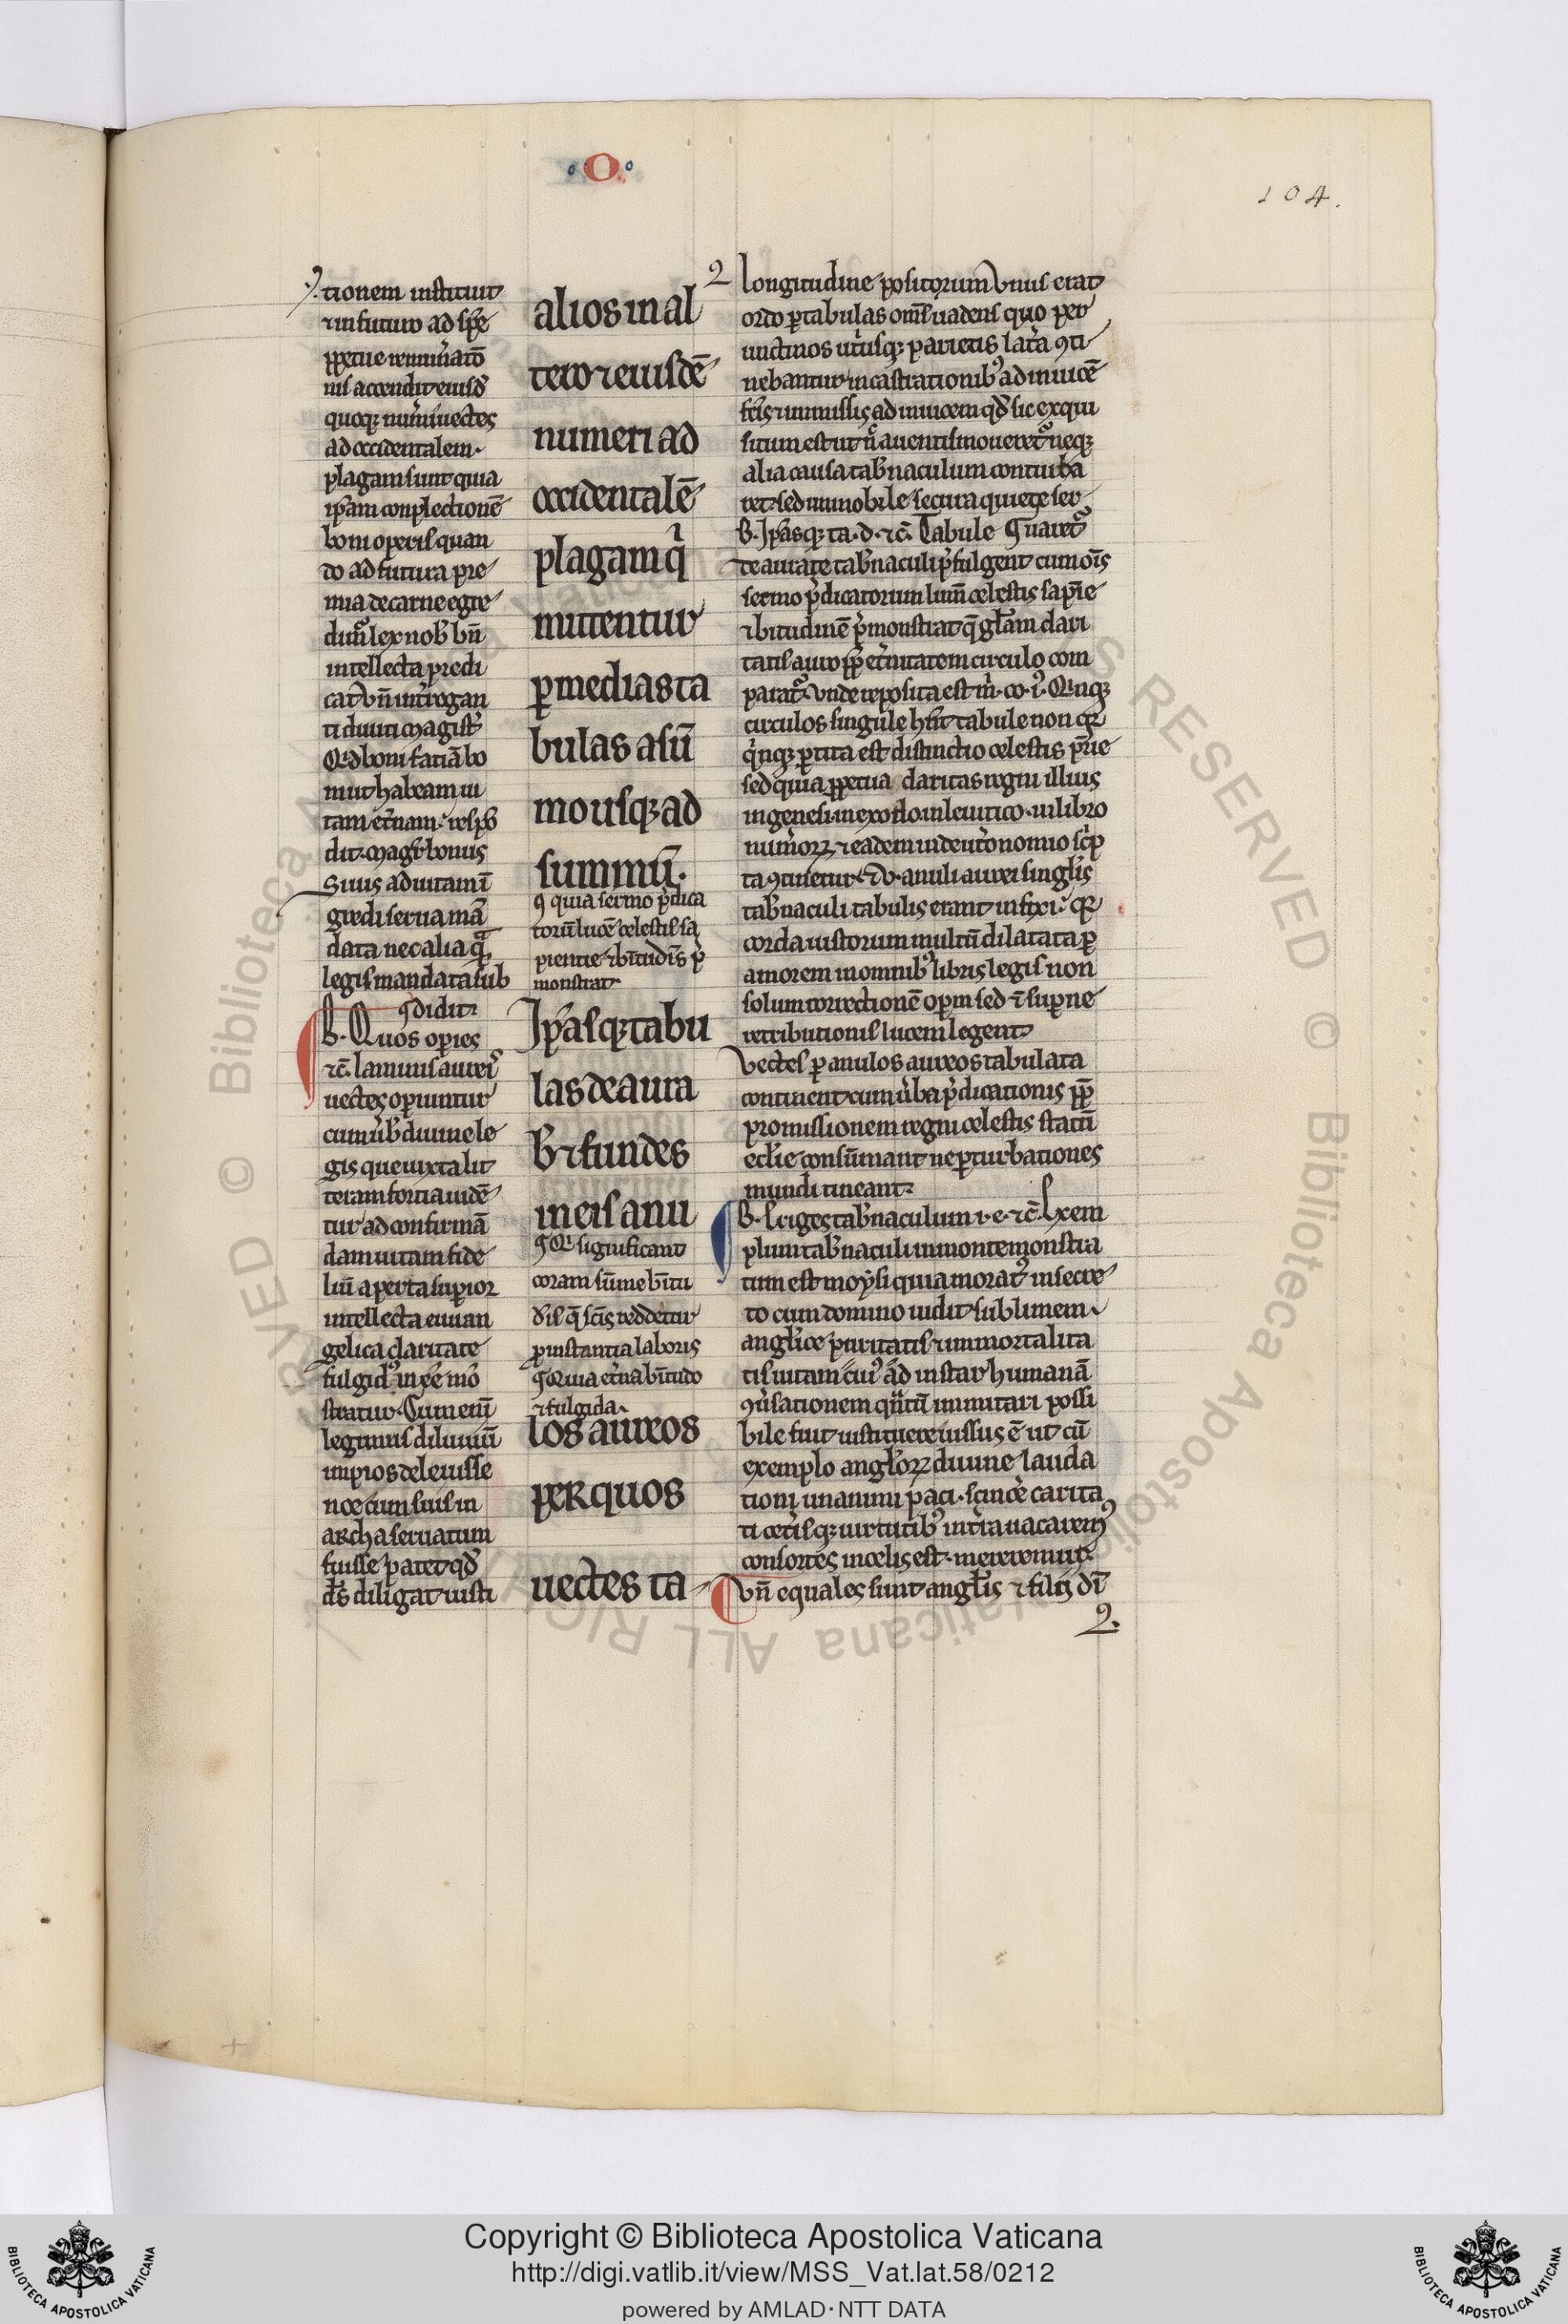 O
104.
tionem instituit
⁊ in futuro ad sp̄e
ꝑpetue remun̄ato
nis accendit eiusd̄
quoqꝫ num̄i uectes
ad occidentalem
plagam sunt quia
ip̄am conplectionē
boni operis quan
do ad futura pre
mia de carne egre
dim̄ lex nob̓ bn̄
intellecta predi
cat bn̄ int̓rogan
ti diuiti magist̓
Qd̓ boni faciā bo
mut habeam ui
tam et̓nam respō
dit magr̄ bonus
Si uis ad uitam ī
gredi serua mā
data nec alia q̄
legis mandata sub
ꝯdidit
B. Quos operies
⁊c̄ laminis aureis
uectes oꝑiuntur
cum ūb̓ diuine le
gis que iuxta lit
teram fortia uidē
tur ad confirmā
dam uitam fide
liū aperta suꝑior
intellecta euuan
gelica claritate
fulgid in
stratur Cum enī
legimus diluuiū
impios deleuisse
noe cum suis in
archa seruatum
fuisse patet qd̓
d̄s diligat iusti
alios in al
tero ⁊ eiusdē
numeri ad
occidentalē
plagam qͥ
mittentur
ꝑ medias ta
bulas a sū
mo usqꝫ ad
summū.
ꝯ quia sermo p̄dica
torū lucē celestis sa
pientie ⁊ bītudīs p̄
monstrat
Ip̄asqꝫ tabu
las deaura
b̓ ⁊ fundes
in eis anu
significant
coram sūme bītu
dīs q̄ sc̄is reddetur
ꝑ instantia laboris
Quia et̓na bītudo
⁊ fulgida
los aureos
per quos
uectes ta
longitudine positorum Vnus erat
ordo ꝑ tabulas om̄s uadens quo per
unctinos ut̓usqꝫ parietis lat̓a ꝯti
nebantur incastrationib⁹ ad inuicē
fc̄is ⁊ inmissis ad inuicem qd̓ sic exqui
situm est ut n̄ a uentis moueret neqꝫ
alia causa tab̓naculum conturba
ret sed inmobile secura quiete ser
B. Ip̄asqꝫ ta. d. ⁊c̄. Tabule uaret
deaurate tab̓naculi p̄fulgent cum oīs
sermo p̄dicatorum lum̄ celestis sapīe
⁊ bītudinē p̄monstrat q̄ gl̄am clari
tatis auro ꝓpt̓ et̓nitatem circulo com
parat Vnde reposita est m̄ co. i. Quinqꝫ
circulos singule hn̄t tabule non qꝛ
qͥnqꝫ ꝑtita est distinctio celestis pr̄ie
sed quia ꝑpetua claritas regni illius
in genesi in exodo in leuitico in libro
num̓orꝝ ⁊ eadem in deut̓onomio sc̓p
ta ꝯtinetur Et v. anuli aurei singlis
tab̓naculi tabulis erant infixi qꝛ
corda iustorum multū dilatata ꝑ
amorem in omnib⁹ libris legis non
solum correctionē oꝑm sed ⁊ suꝑne
retributionis lucem legent
Vectes ꝑ anulos aureos tabulata
continent cum ūba p̄dicationis ꝓpt̓
promissionem regni celestis statū
ecl̓ie consūmant ne ꝑturbationes
mundi timeant
B. Eriges tab̓naculum i. e. ⁊c̄. Exem
plum tab̓naculi in monte monstra
tum est moysi quia morat⁹ in secre
to cum domino uidit sublimem
angl̓ice puritatis ⁊ inmortalita
tis uitam cui⁹ ad instar humanā
ꝯūsationem qn̄tū inmitari possi
bile fuit instituere iussus ē ut cū
exemplo angl̓orꝝ diuine lauda
tioni unanimi paci sincere carita
ti cet̓isqꝫ uirtutib⁹ int̓ra uacarem⁹
consortes in celis est mereremur
Vn̄ equales sunt angl̓is ⁊ filij di
Copyright © Biblioteca Apostolica Vaticana
http://digi.vatlib.it/view/MSS_Vat.lat.58/0212
powered by AMLAD・NTT DATA
BIBLIOTECA APOSTOLICA VATICANA
BIBLIOTECA APOSTOLICA VATICANA
© Biblioteca Apostolica Vaticana ALL RIGHTS RESERVED